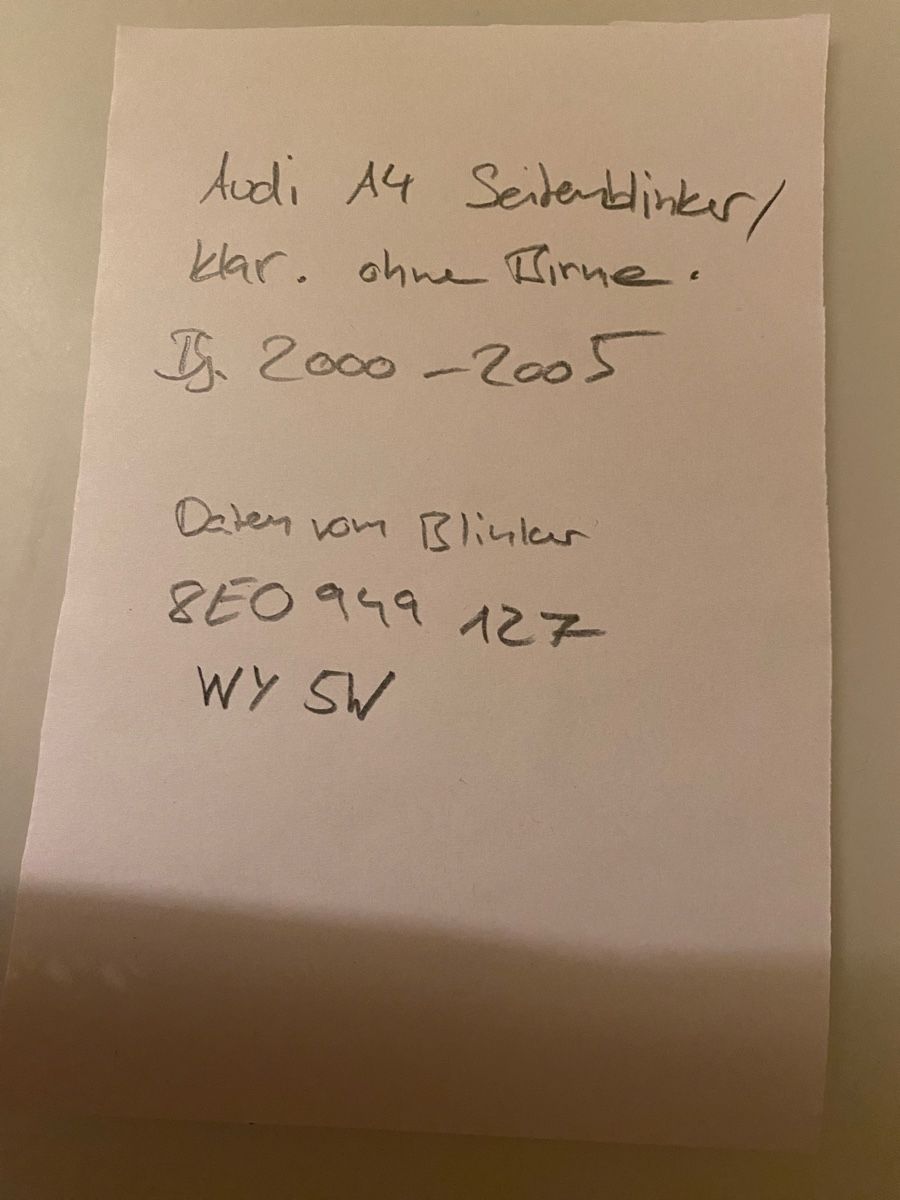 Audi A4 Seitenblinker/
klar. ohne Birne.
Bj. 2000-2005
Daten vom Blinker
8E0 949 127
WY 5W